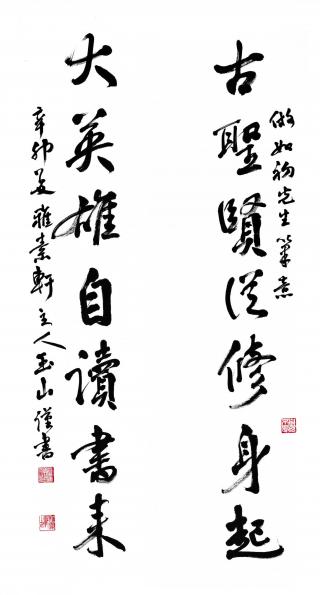 倣如初先生筆意
古聖賢從修身起
大英雄自讀書來
辛卯夏雅素軒主人玉山謹書